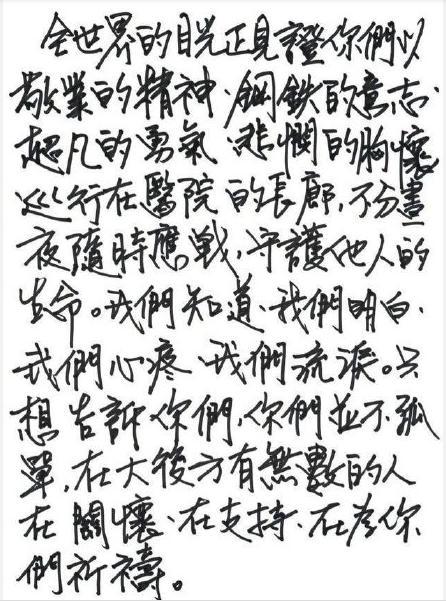 全世界的目光正見證你們以
敬業的精神、鋼鐵的意志、
超凡的勇氣、悲憫的胸懷
巡行在醫院的長廊,不分晝
夜隨時應戰,守護他人的
生命。我們知道、我們明白、
我們心疼、我們流淚。只
想告訴你們,你們並不孤
單,在大後方有無數的人
在關懷、在支持、在為你
們祈禱。